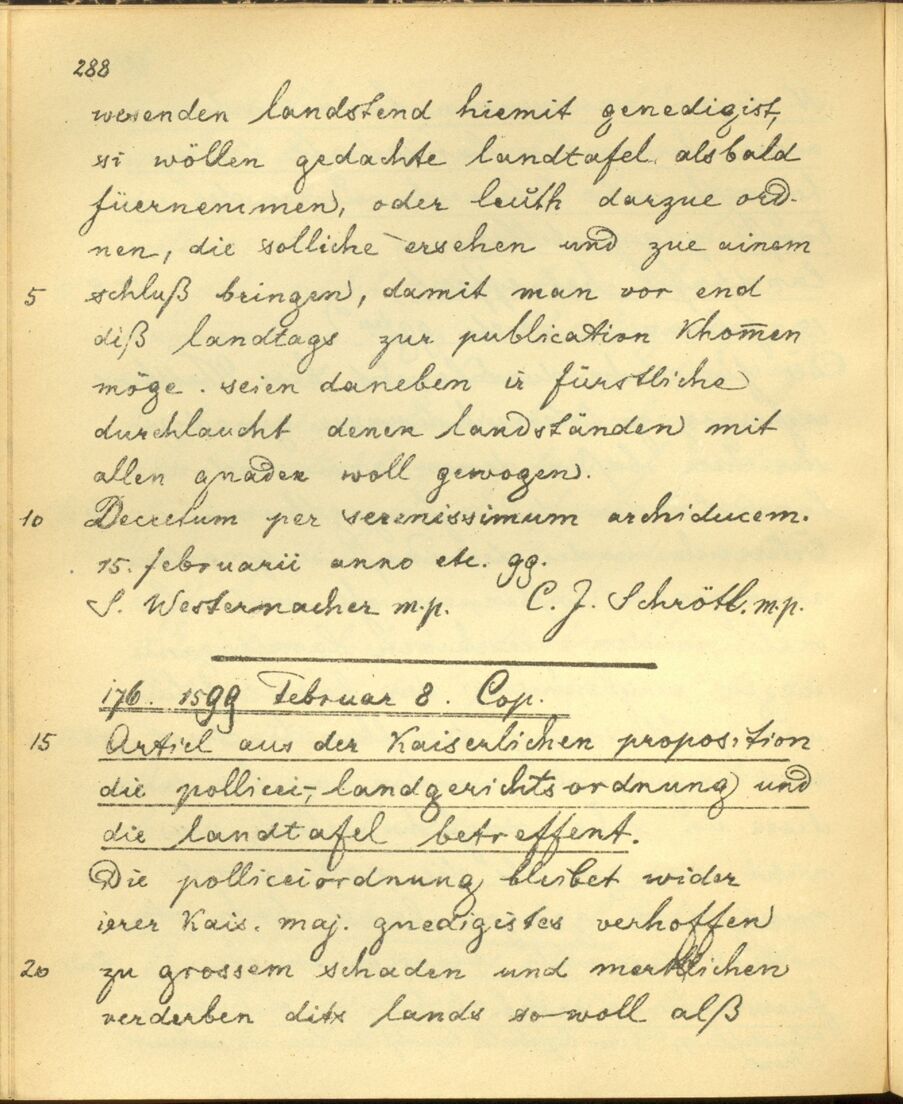 288
wesenden landstend hiemit genedigist,
si wöllen gedachte landtafel alsbald
füernemmen, oder leuth darzue ord-
nen, die solliche ersehen und zue ainem
5 schluß bringen, damit man vor end
diß landtags zur publication khom̅en
möge. seien daneben ir fürstliche
durchlaucht denen landständen mit
allen gnaden woll gewogen.
10 Decretum per serenissimum archiducem.
15. februarii anno etc. 99.
S. Westernacher m.p. C. J. Schrötl. m.p.
176. 1599 Februar 8. Cop.
15 Articl aus der Kaiserlichen proposition
die pollicei-, landgerichtsordnung und
die landtafel betreffent.
Die polliceiordnung bleibet wider
irer Kais. maj. gnedigistes verhoffen
20 zu grossem schaden und merklichen
verderben dits lands sowoll alß